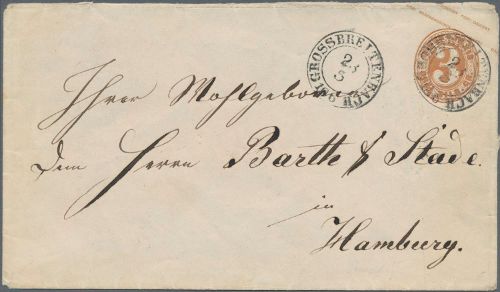 GROSSBREITENBACH
2/5
3
Ihrer Wohlgeboren
dem Herrn Bartte & Stade.
in
Hamburg.